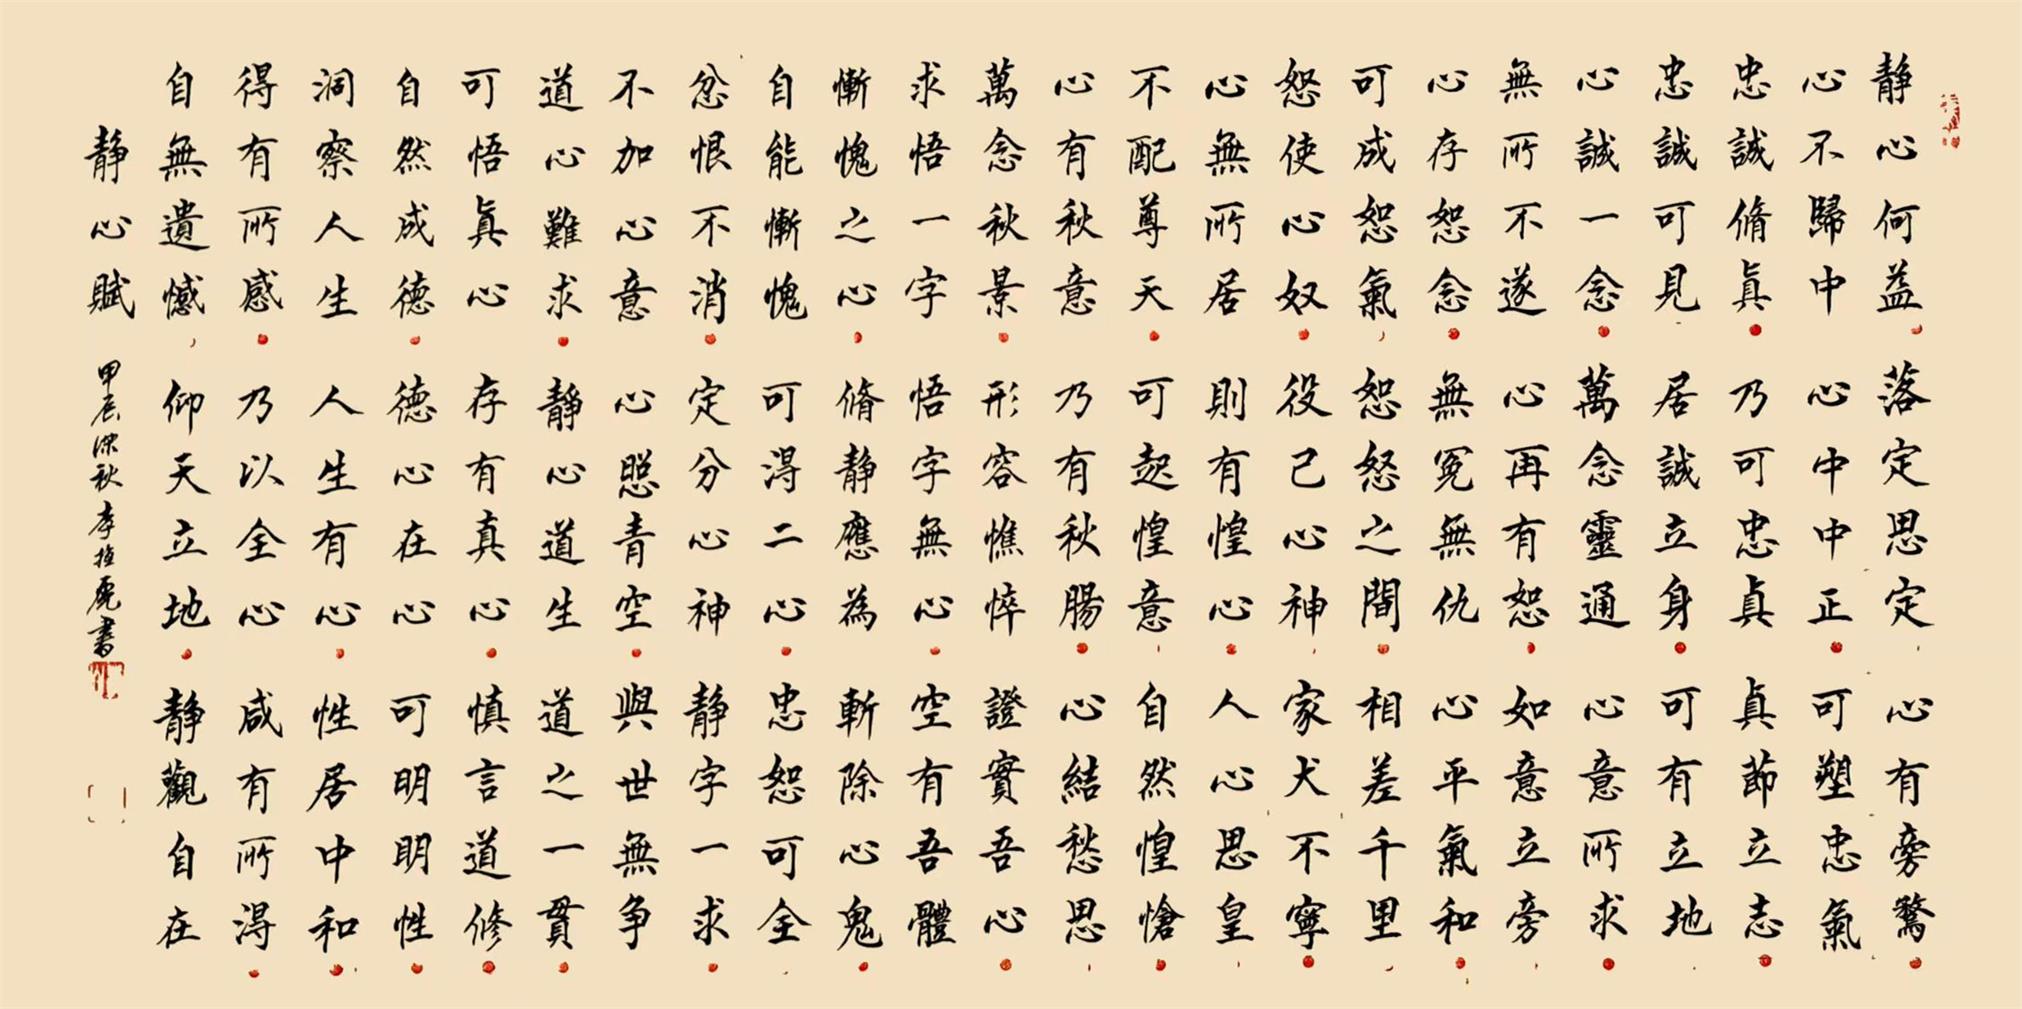 静心何益落定思定心有旁騖
心不歸中心中中正可塑忠氣
忠誠脩真乃可忠貞真節立志
忠誠可見居誠立身可有立地
心誠一念萬念靈通心意所求
無所不遂心再有恕如意立旁
心存恕念無冤無仇心平氣和
可成恕氣恕怒之間相差千里
怒使心奴役己心神家犬不寧
心無所居則有惶心人心思皇
不配尊天可起惶意自然惶愴
心有秋意乃有秋腸心結愁思
萬念秋景形容憔悴證實吾心
求悟一字悟字無心空有吾體
慚愧之心脩静應為斬除心鬼
自能慚愧可淂二心忠恕可全
忿恨不消定分心神静字一求
不加心意心照青空與世無争
道心難求静心道生道之一貫
可悟真心存有真心慎言道修
自然成德德心在心可明明性
洞察人生人生有心性居中和
得有所感乃以全心咸有所淂
自無遺憾仰天立地静觀自在
静心賦 甲辰深秋李 書